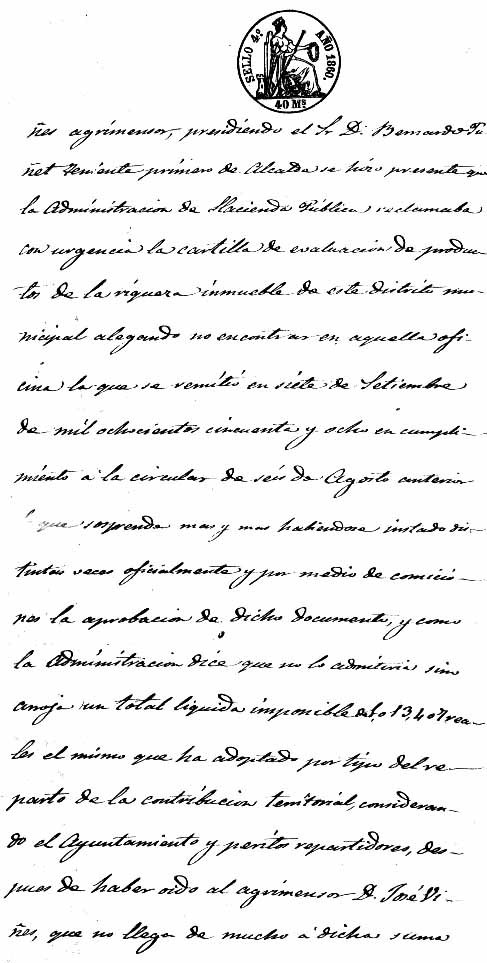 SELLO 4º AÑO 1860.
40 Mˢ
ñes agrimensor, presidiendo el Sr D. Bernardo Fu
ñet Teniente primero de Alcalde se hizo presente que
la Administracion de Hacienda Pública reclamaba
con urgencia la cartilla de evaluacion de produc
tos de la riqueza inmueble de este distrito mu-
nicipal alegando no encontrar en aquella ofi-
cina la que se remitió en siete de Setiembre
de mil ochocientos cincuenta y ocho en cumpli-
miento á la circular de seis de Agosto anterior
que sorprende mas y mas habiendose instado dis-
tintas veces oficialmente y por medio de comicio-
nes la aprobacion de dicho documento, y como
la Administracion dice que no lo admitiria sino
arroja un total liquido imponible de 1.013,407 rea-
les el mismo que ha adoptado por tipo del re-
parto de la contribucion territorial, consideran-
do el Ayuntamiento y peritos repartidores, des-
pues de haber oido al agrimensor D. José Vi-
ñes, que no llega de mucho á dicha suma